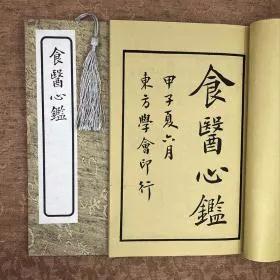 食醫心鑑
食醫心鑑
甲子夏六月
東方學會印行